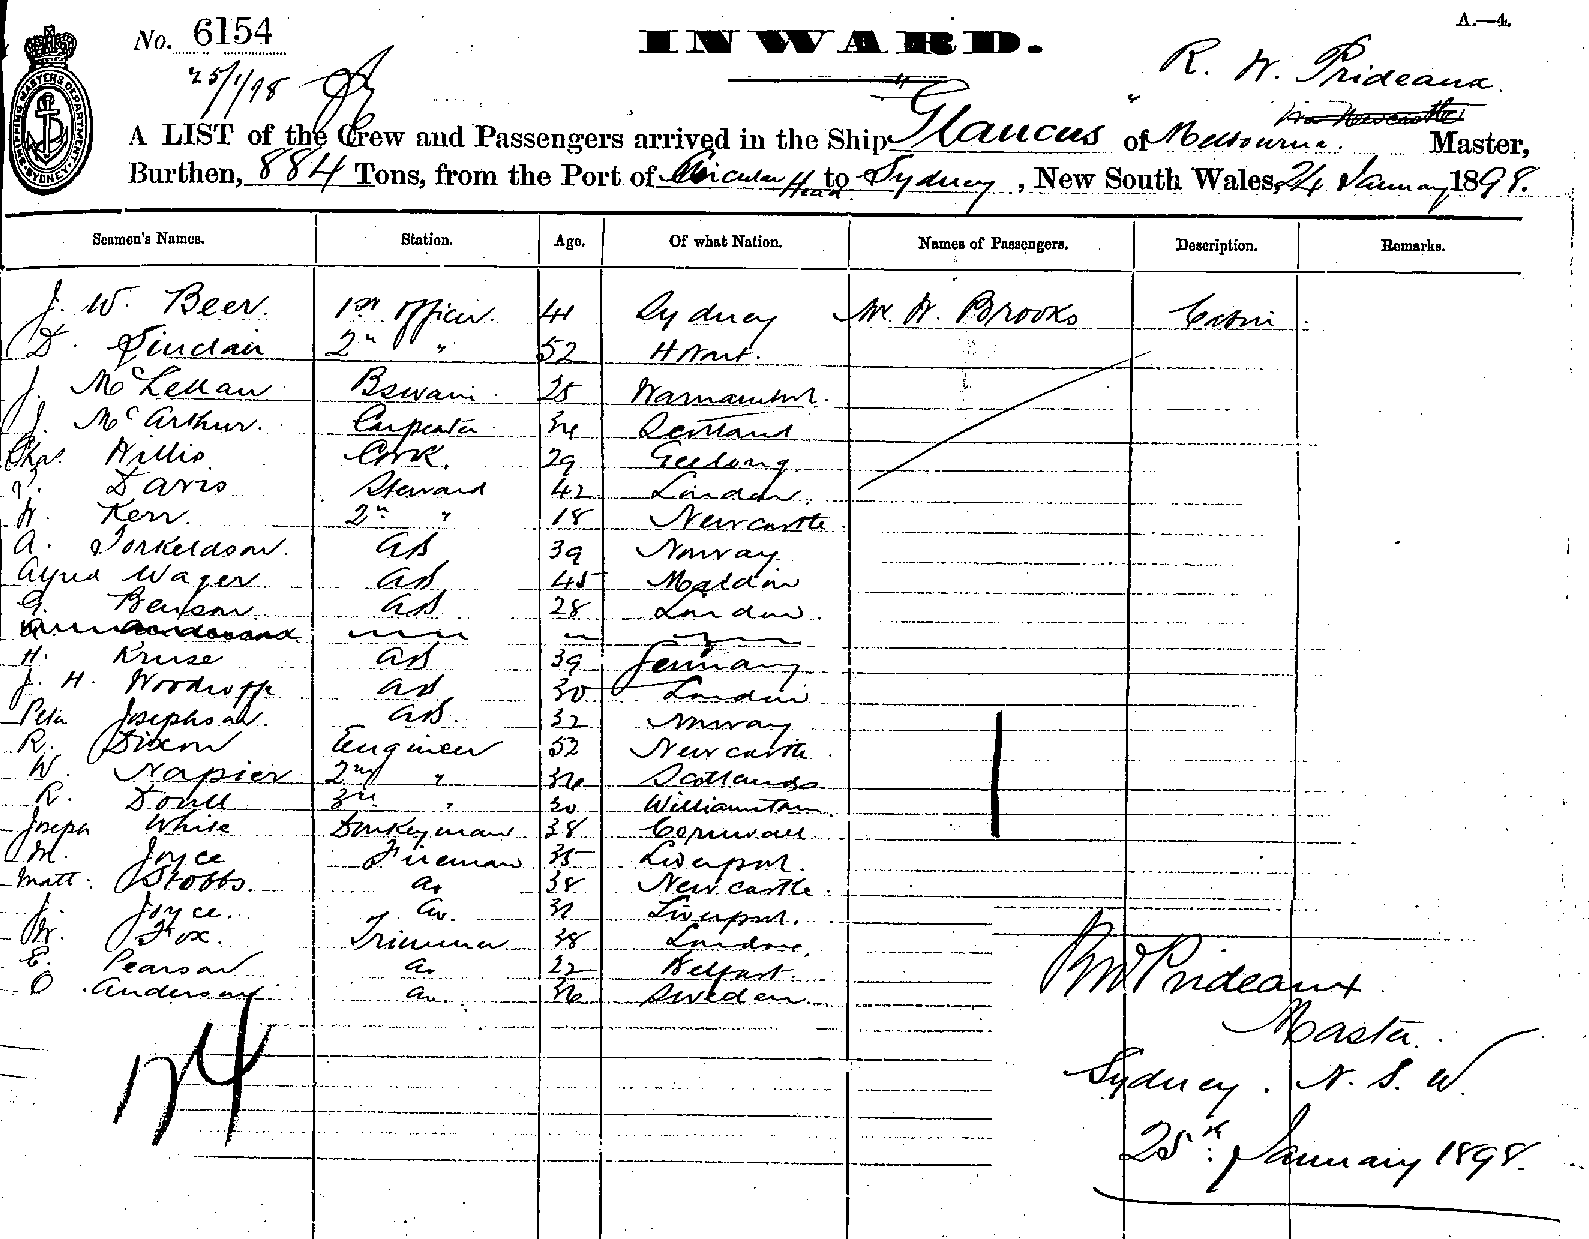 A.—4.
No. 6154
INWARD.
25/1/98
R. W. Prideaux
via Newcastle
A LIST of the Crew and Passengers arrived in the Ship Glaucus of Melbourne Master,
Burthen, 884 Tons, from the Port of Circular Head to Sydney, New South Wales, 24 January 1898.
SHIPPING MASTERS DEPARTMENT SYDNEY
Seamen's Names. Station. Age. Of what Nation. Names of Passengers. Description. Remarks.
J. W. Beer. 1st Officer. 41 Sydney Mr. W. Brooks Cabin
D. Sinclair 2nd " 52 Hobart.
J. McLellan Bswain. 25
J. McArthur. Carpenter 34 Scotland
Chas. Willis Cook. 29 Geelong
Davis Steward 42 London
W. Kerr. 2nd " 18 Newcastle
A. Torkeldson. AB 39 Norway
Alfred Wager AB 45 Maldon
G. Benson AB 28 London
H. Kruse AB 39 Germany
J. H. Woodropp AB 30 London
Peter Josephson. AB. 32 Norway
R. Dixon Engineer 52 Newcastle
W. Napier 2nd " Scotland
R. Doull 3rd " 30 Williamstown
Joseph White Donkeyman 38 Cornwall
M. Joyce Fireman 35 Liverpool.
Matt. Stobbs. 38 Newcastle.
Joyce. Liverpool.
W. Fox. Trimmer 38 London.
E. Pearson 22 Belfast
O Anderson 36 Sweden
24
RW Prideaux
Master.
Sydney. N. S. W.
25th January 1898.